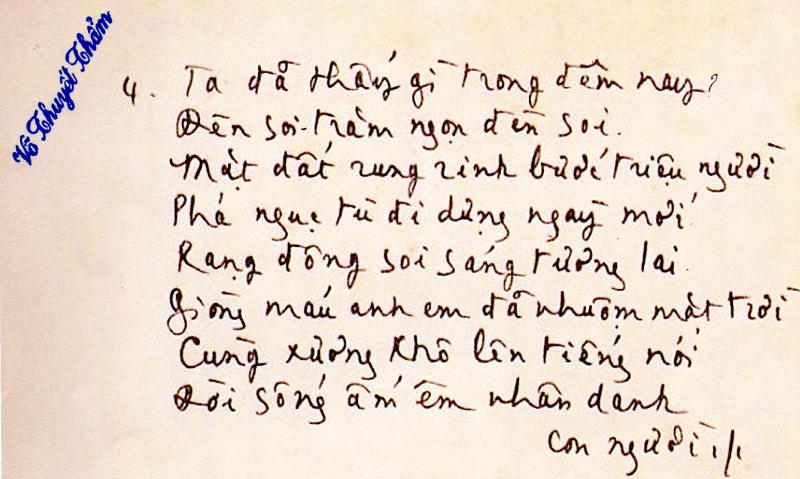 Võ Thuyết Thẩm
4. Ta đã thấy gì trong đêm nay?
Đèn soi - trăm ngọn đèn soi.
Mặt đất rung rinh bước triệu người
Phá ngục tù đi dựng ngày mới.
Rạng đông soi sáng tương lai.
Giòng máu anh em đã nhuộm mặt trời
Cùng xương khô lên tiếng nói
Đời sống ấm êm nhân danh
con người ./.